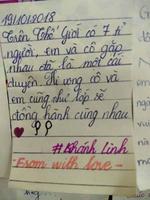 19/10/2018
Trên Thế Giới có 7 tỉ
người, em và cô gặp
nhau đã là một cái
duyên. Hi vọng cô và
em cũng như lớp sẽ
đồng hành cùng nhau
#Khánh Linh
-From with love-